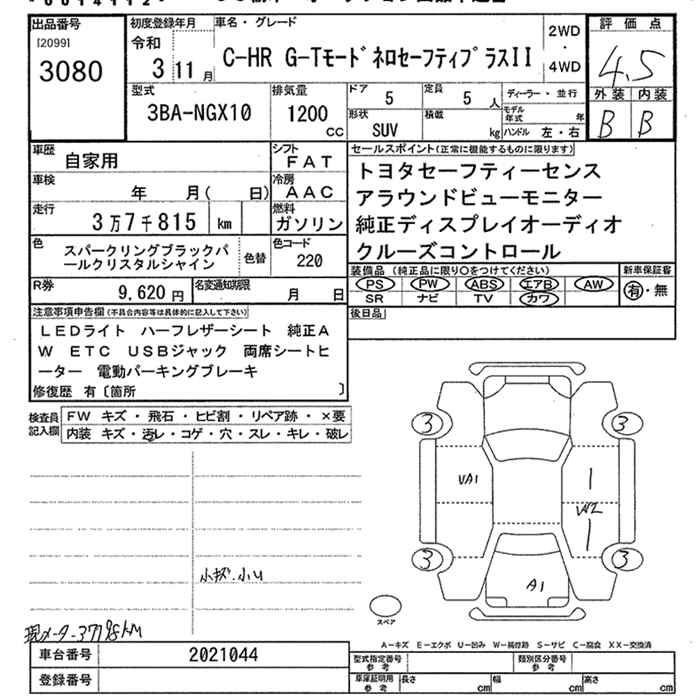 出品番号
[2099]
3080
初度登録年月
令和
3 11 月
車名・グレード
C-HR G-TモードネロセーフティプラスII
2WD
・
4WD
評価点
4.5
外装 内装
B B
型式
3BA-NGX10
排気量
1200
CC
ドア
5
定員
5 人
形状
SUV
積載
kg
ディーラー・並行
モデル年式 年
ハンドル 左・右
車歴
自家用
シフト
FAT
車検
年 月( 日)
冷房
AAC
走行
3万7千815 km
燃料
ガソリン
色
スパークリングブラックパ
ールクリスタルシャイン
色替
色コード
220
R券
9,620 円
名変通知期限
月 日
セールスポイント(正常に機能するものに限ります)
トヨタセーフティーセンス
アラウンドビューモニター
純正ディスプレイオーディオ
クルーズコントロール
装備品 (純正品に限り○をつけてください)
PS PW ABS エアB AW
SR ナビ TV カワ
新車保証書
有・無
後日品
注意事項申告欄(不具合内容等は具体的に記入して下さい)
LEDライト ハーフレザーシート 純正A
W ETC USBジャック 両席シートヒ
ーター 電動パーキングブレーキ
修復歴 有〔箇所 〕
検査員
記入欄
FW キズ・飛石・ヒビ割・リペア跡・×要
内装 キズ・汚レ・コゲ・穴・スレ・キレ・破レ
3 3
UA1
W2
3 3
A1
スペア
小キズ.小U
現メーター37798KM
A-キズ E-エクボ U-凹み W-補修跡 S-サビ C-腐食 XX-交換済
車台番号
2021044
登録番号
型式指定番号
参考
類別区分番号
参考
車庫証明用
参考
長さ cm 幅 cm 高さ cm